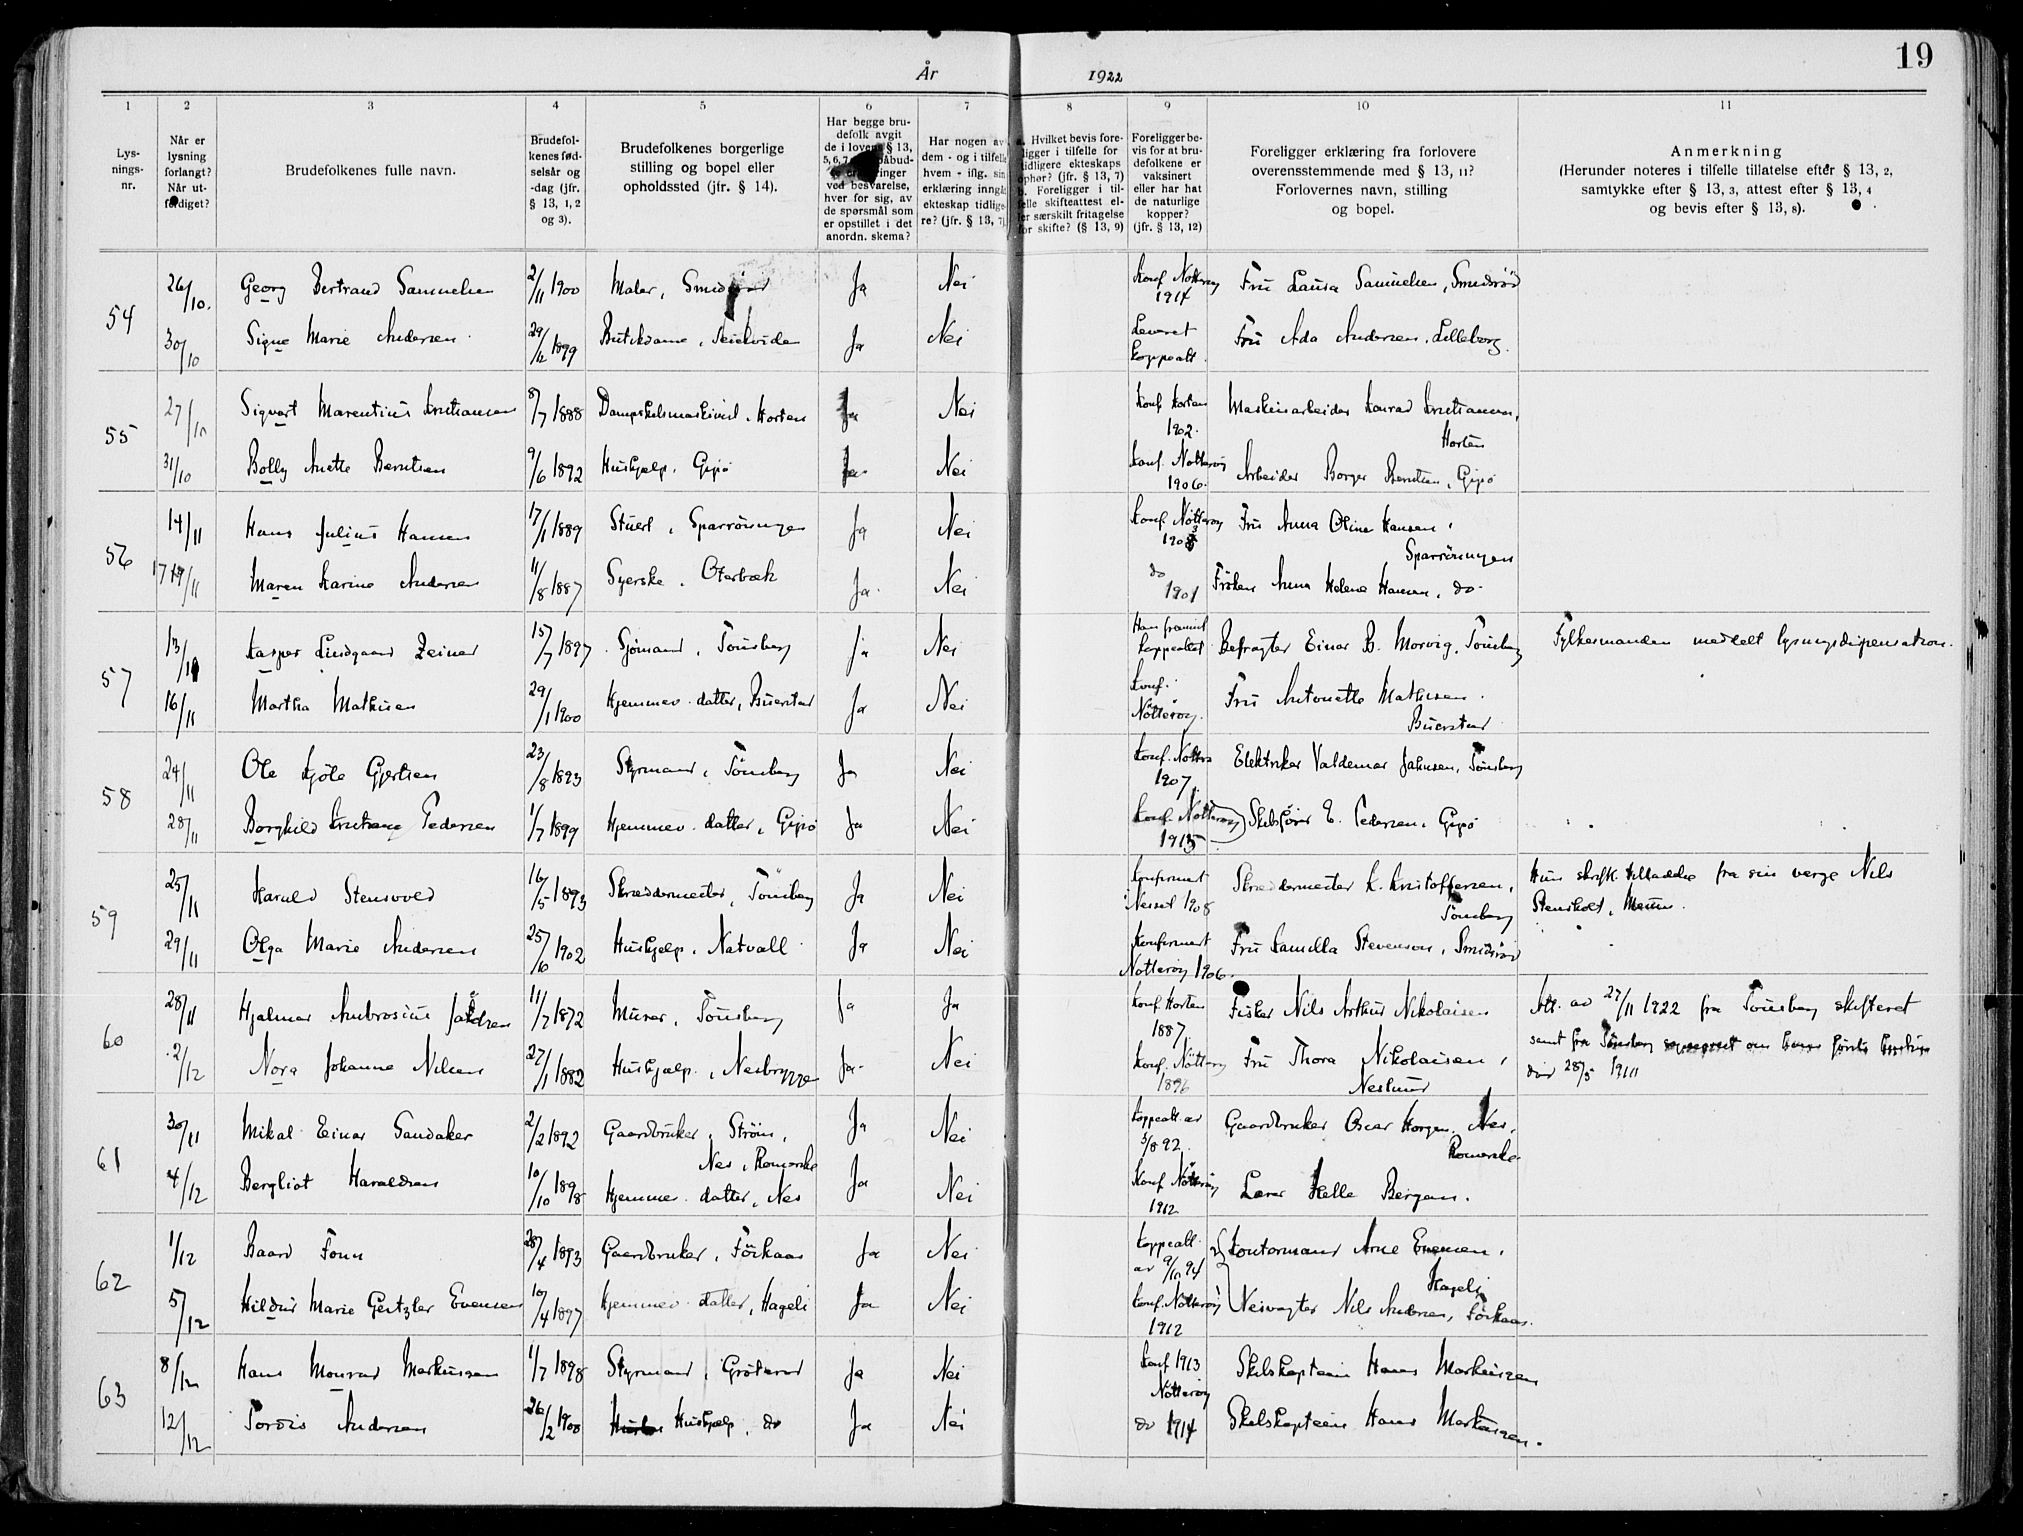 19
År 1922
1 2 3 4 5 6 7 8 9 10 11
Lys-
nings-
nr.
Når er
lysning
forlangt?
Når ut-
ferdiget?
Brudefolkenes fulle navn.
Brudefol-
kenes fød-
selsår og
-dag (jfr.
§ 13, 1, 2
og 3).
Brudefolkenes borgerlige
stilling og bopel eller
opholdssted (jfr. § 14).
Har begge bru-
defolk avgit
de i lovens § 13,
ved besvarelse,
hver for sig, av
de spørsmål som
er opstillet i det
anordn. skema?
Har nogen av
dem - og i tilfelle
hvem - iflg. sin
erklæring inngåt
ekteskap tidlige-
re? (jfr. § 13, 7)
a. Hvilket bevis fore-
ligger i tilfelle for
tidligere ekteskaps
ophør? (jfr. § 13, 7)
b. Foreligger i til-
felle skifteattest el-
ler særskilt fritagelse
for skifte? (§ 13, 9)
Foreligger be-
vis for at bru-
defolkene er
vaksinert
eller har hat
de naturlige
kopper?
(jfr. § 13, 12)
Foreligger erklæring fra forlovere
overensstemmende med § 13, 11?
Forlovernes navn, stilling
og bopel.
Anmerkning
(Herunder noteres i tilfelle tillatelse efter § 13, 2,
samtykke efter § 13, 3, attest efter § 13, 4
og bevis efter § 13, 8).
54 26/10. Georg Bertrand Samuelsen 2/11 1900 Maler, Ja Nei Konf. Nøtterøy 1914 Fru Laura Samuelsen, Smidsrød
30/10 Signe Marie Andersen 29/12 1899 Butikdame, Ja Nei Leveret koppeatt. Fru Ada Andersen, Lilleborg.
55 27/10 Sigvart Marentius Kristiansen 8/7 1888 Horten Ja Nei Konf. Horten 1902. Maskinarbeider Konrad Kristiansen, Horten
31/10 Bolly Anette Berntsen 9/6 1892 Hushjælp, Gipø Ja Nei Konf. Nøtterøy 1906. Arbeider Borger Berntsen, Gipø
56 14/11 Hans Julius Hansen 17/1 1889 Stuert, Ja Nei Konf. Nøtterøy Fru Anna Oline Hansen,
17/11 Maren Karine Andersen 11/8 1887 Syerske, Oterbæk Ja Nei do 1901 Frøken Anna Helene Hansen, do
57 13/11 Kasper Lindgaard Zeiner 15/7 1897 Sjømand, Tønsberg Ja Nei Han fremvist koppeattest Befragter Einar B. Morvig, Tønsberg Fylkesmanden meddelt lysningsdispensation.
16/11 Martha Mathisen 29/1 1900 Hjemmev. datter, Buerstad Ja Nei Konf. Nøtterøy. Fru Antonette Mathisen, Buerstad
58 24/11 Ole Kjøle Gjertsen 23/8 1893 Styrmand, Tønsberg Ja Nei Konf. Nøtterø 1907 Elektriker Valdemar Johnsen, Tønsberg
28/11 Borghild Kristiane Pedersen 1/7 1899 Hjemmev. datter, Gipø Ja Nei Konf. Nøtterøy 1915 Skibsfører E. Pedersen, Gipø
59 25/11 Harald Stensvold 16/5 1893 Skræddermester, Tønsberg Ja Nei Konfirmert i Nesset 1908 Skræddermester K. Kristoffersen, Tønsberg Hun skriftl. tilladelse fra sin verge Nils
Stensholt,
29/11 Olga Marie Andersen 25/10 1902 Hushjelp, Natvall Ja Nei Konfirmert Nøtterøy 1906. Fru Kamilla Stevenson, Smidsrød
60 28/11 Hjalmar Ambrosius 11/7 1872 Murer, Tønsberg Ja Ja Konf. Horten 1887 Fisker Nils Arthur Nikolaisen Att. av 27/11 1922 fra Tønsberg skifteret
samt fra Tønsberg om hans første hustrus
død 28/5 1911
2/12 Nora Johanne Nilsen 27/1 1882 Hushjælp, Nesbrygge Ja Nei Konf. Nøtterøy 1896 Fru Thora Nikolaisen,
61 30/11 Mikal Einar Sandaker 2/2 1892 Gaardbruker, Strøm, Nes, Romerike Ja Nei Koppeatt. av 5/8 92. Gaardbruker Oscar Horgen, Nes, Romerike
4/12 Bergliot Haraldsen 10/10 1898 Hjemmev. datter, Nes Ja Nei Konf. Nøtterøy 1912 Lærer Helle Bergan.
62 1/12 Baard Fonn 28/4 1893 Gaardbruker, Ja Nei Koppeatt. av 9/10 94 Kontormand Arne Evensen, Hageli,
5/12 Hildur Marie Gertzler Evensen 10/4 1897 Hjemmev. datter, Hageli Ja Nei Konf. Nøtterøy 1912 Veivogter Nils Andersen,
63 8/12 Hans Monrad Markussen 1/7 1898 Styrmand, Grøterød Ja Nei Konf. 1913 Nøtterøy Skibskaptein Hans Markussen
12/12 Tordis Andersen 26/2 1900 Hushjelp, do Ja Nei do 1914 Skibskaptein Hans Markussen.